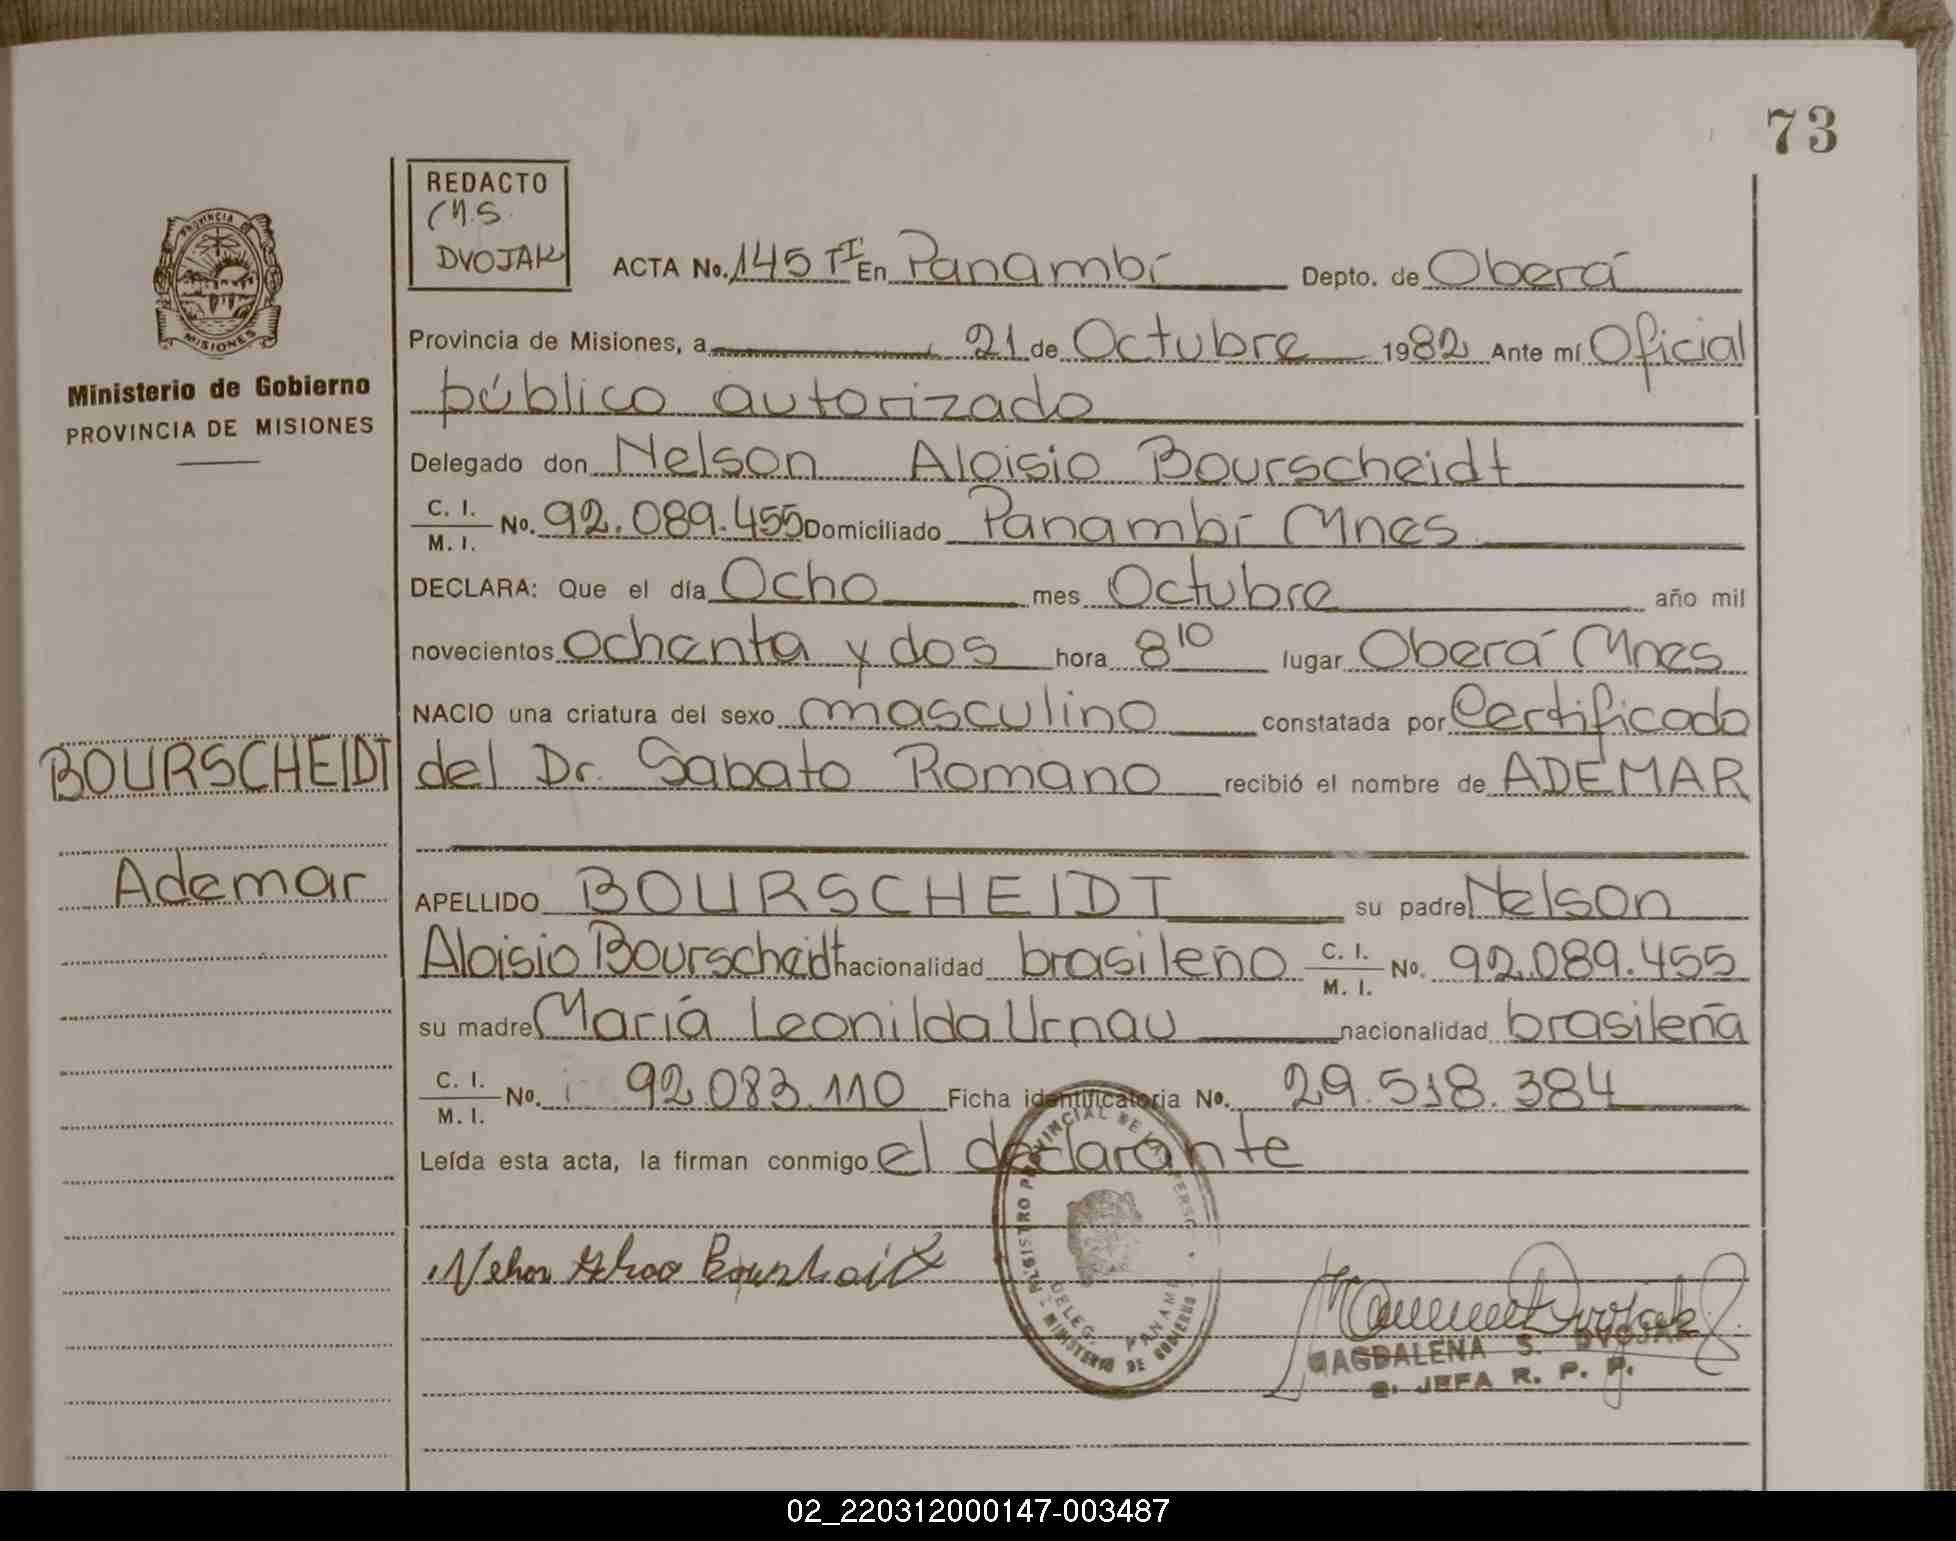 73
REDACTO
MS.
DVOJAK
PROVINCIA DE
MISIONES
Ministerio de Gobierno
PROVINCIA DE MISIONES
ACTA No. 145 TI En Panambí Depto. de Oberá
Provincia de Misiones, a 21 de Octubre 1982 Ante mí Oficial
público autorizado
Delegado don Nelson Aloisio Bourscheidt
C. I.
M. I. No. 92.089.455 Domiciliado Panambí Mnes
DECLARA: Que el día Ocho mes Octubre año mil
novecientos ochenta y dos hora 8 10 lugar Oberá Mnes
NACIO una criatura del sexo masculino constatada por Certificado
BOURSCHEIDT
del Dr. Sabato Romano recibió el nombre de ADEMAR
Ademar
APELLIDO BOURSCHEIDT su padre Nelson
Aloisio Bourscheidt nacionalidad brasileño C. I. M. I. No. 92.089.455
su madre María Leonilda Urnau nacionalidad brasileña
C. I.
M. I. No. 92.083.110 Ficha identificatoria No. 29.518.384
Leída esta acta, la firman conmigo el declarante
REGISTRO PROVINCIAL DE LAS PERSO
DELEG. PANAMBI
MINISTERIO DE GOBIERNO
MAGDALENA S. DVOJAK
JEFA R. P. P.
02_220312000147-003487